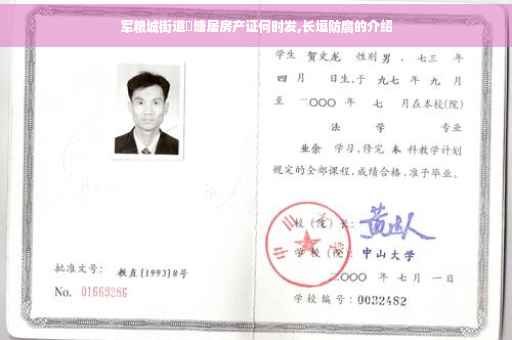 军粮城街道塘居房产证何时发,长垣防腐的介绍
学生 贺文龙 性别 男 、七三 年
四 月 日生,于 九七 年 九 月
至 二〇〇〇 年 七 月在本校(院)
法 学 专业
业余 学习,修完 本 科教学计划
规定的全部课程,成绩合格,准予毕业。
校(院)长:
学校(院): 中山大学
二〇〇〇 年 七 月 一 日
学校编号: 0032482
批准文号: 教直[1993]8号
No. 01669286
中山大学